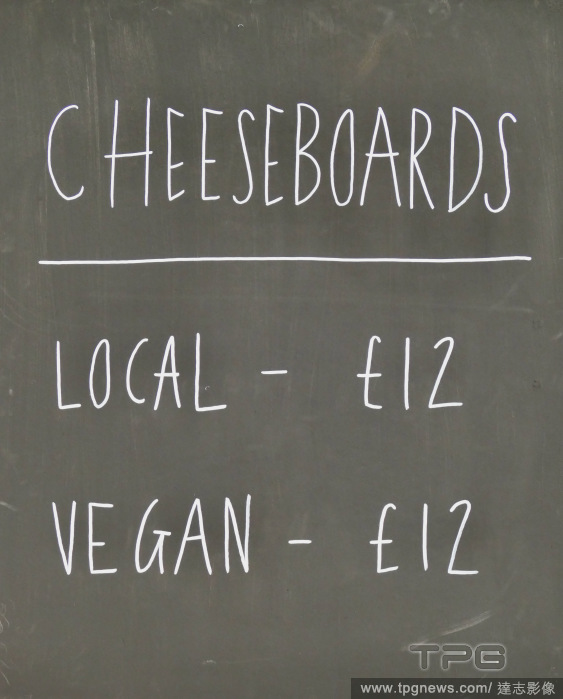 CHEESEBOARDS
LOCAL - £12
VEGAN - £12
TPG
www.tpgnews.com/ 達志影像